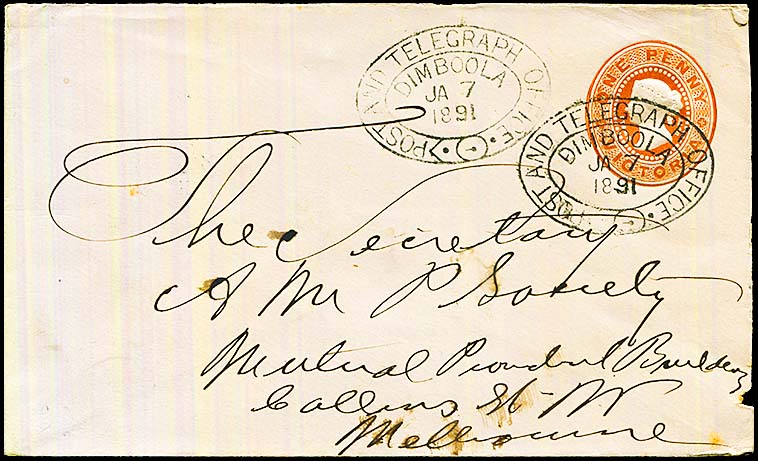 POST AND TELEGRAPH OFFICE
DIMBOOLA
JA 7
1891
ONE PENNY
VICTORIA
POST AND TELEGRAPH OFFICE
DIMBOOLA
JA 7
1891
The Secretary
A M P Society
Mutual Provident Building
Collins St W
Melbourne